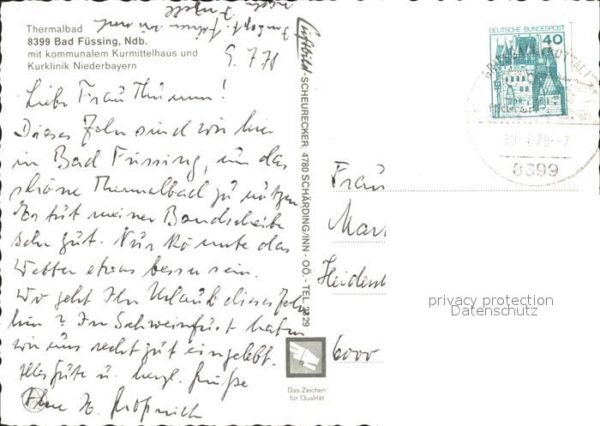 Thermalbad
8399 Bad Füssing, Ndb.
mit kommunalem Kurmittelhaus und
Kurklinik Niederbayern
9.7.78
Liebe Frau Thumm!
Dieses Jahr sind wir hier
in Bad Füssing, um das
schöne Thermalbad zu nützen
Es tut meiner Bandscheibe
sehr gut. Nur könnte das
Wetter etwas besser sein.
Wo geht Ihr Urlaub dieses Jahr
hin? In Schweinfurt haben
wir uns recht gut eingelebt.
Alles Gute u. herzl. Grüße
Ihre H.
Luftbild SCHEURECKER, 4780 SCHÄRDING/INN - OÖ. - TEL.
Das Zeichen
für Qualität
DEUTSCHE BUNDESPOST
40
78-7
8399
Frau
6000
privacy protection
Datenschutz